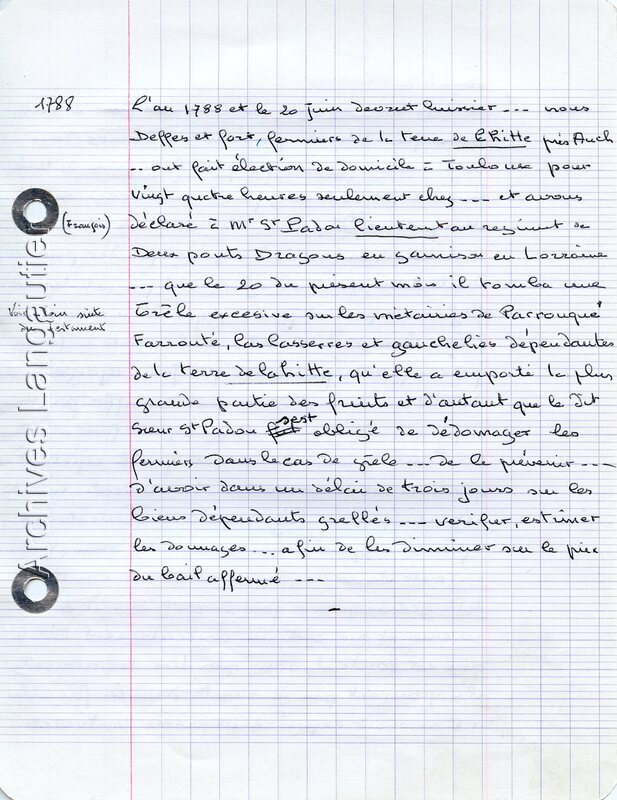 1788
L'an 1788 et le 20 juin devant huissier --- nous
Deffes et fort, fermiers de la terre de lhitte près Auch
.. ont fait élection de domicile à Toulouse pour
vingt quatre heures seulement chez --- et avons
(François)
déclaré à Mr St Padou lieutent au regiment de
Deux ponts Dragons en garnison en Lorraine
--- que le 20 du présent mois il tomba une
Voir plus suite
testament
Grêle excesive sur les métairies de Parrouqué
Farrouté, las lasserres et gauchelies dépendantes
de la terre de lahitte, qu'elle a emporté la plus
grande partie des fruits et d'autant que le dit
Sieur St Padou sest obligé de dédomager les
fermiers dans le cas de grêle --- de le prévenir ---
D'avoir dans un délai de trois jours sur les
biens dépendants grellés --- verifier, estimer
les domages ... afin de les diminer sur le prix
du bail affermé ---
Archives Langautier